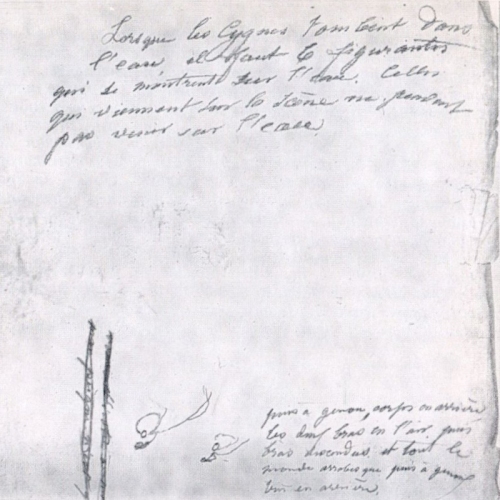 Lorsque les Cygnes tombent dans
l'eau il faut 6 figurantes
qui se montrents sur l'eau. Celles
qui viennent sur la scène ne peuvent
pas venir sur l'eau.
puis à genou, corps en arrière
les deux bras en l'air, puis
bras descendus, et tout le
monde arabesque puis à genou
en arrière